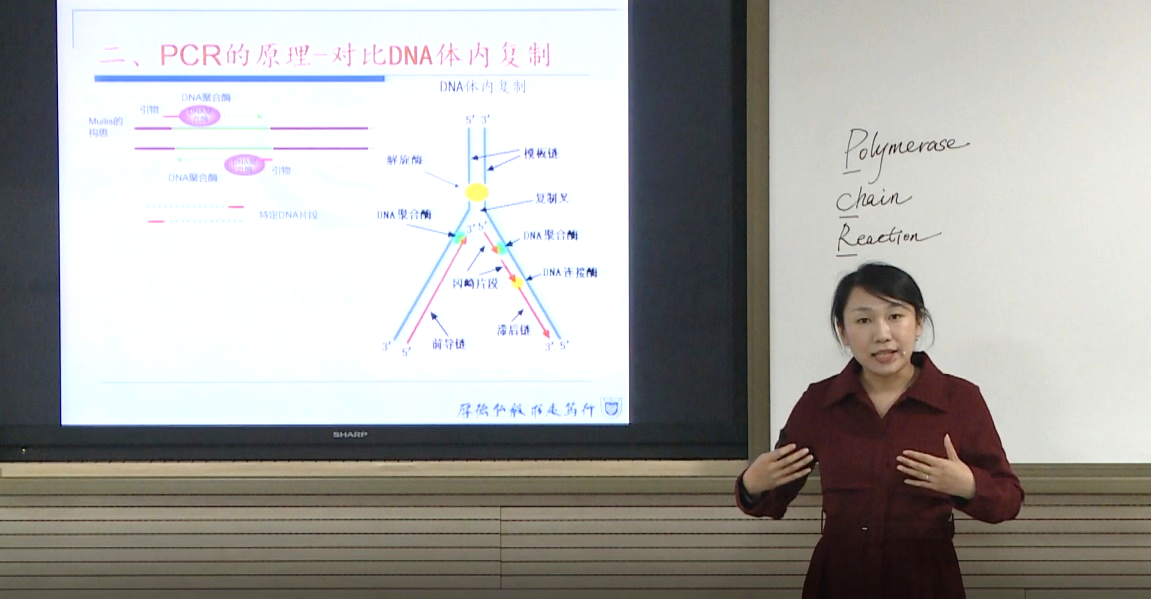 二、PCR的原理-对比DNA体内复制
DNA体内复制
DNA聚合酶
引物
Mullis的
构思
引物
DNA聚合酶
特定DNA片段
5' 3'
解旋酶
模板链
复制叉
DNA聚合酶
3' 5'
DNA聚合酶
DNA连接酶
冈崎片段
滞后链
前导链
3' 5'
3' 5'
SHARP
Polymerase
chain
Reaction